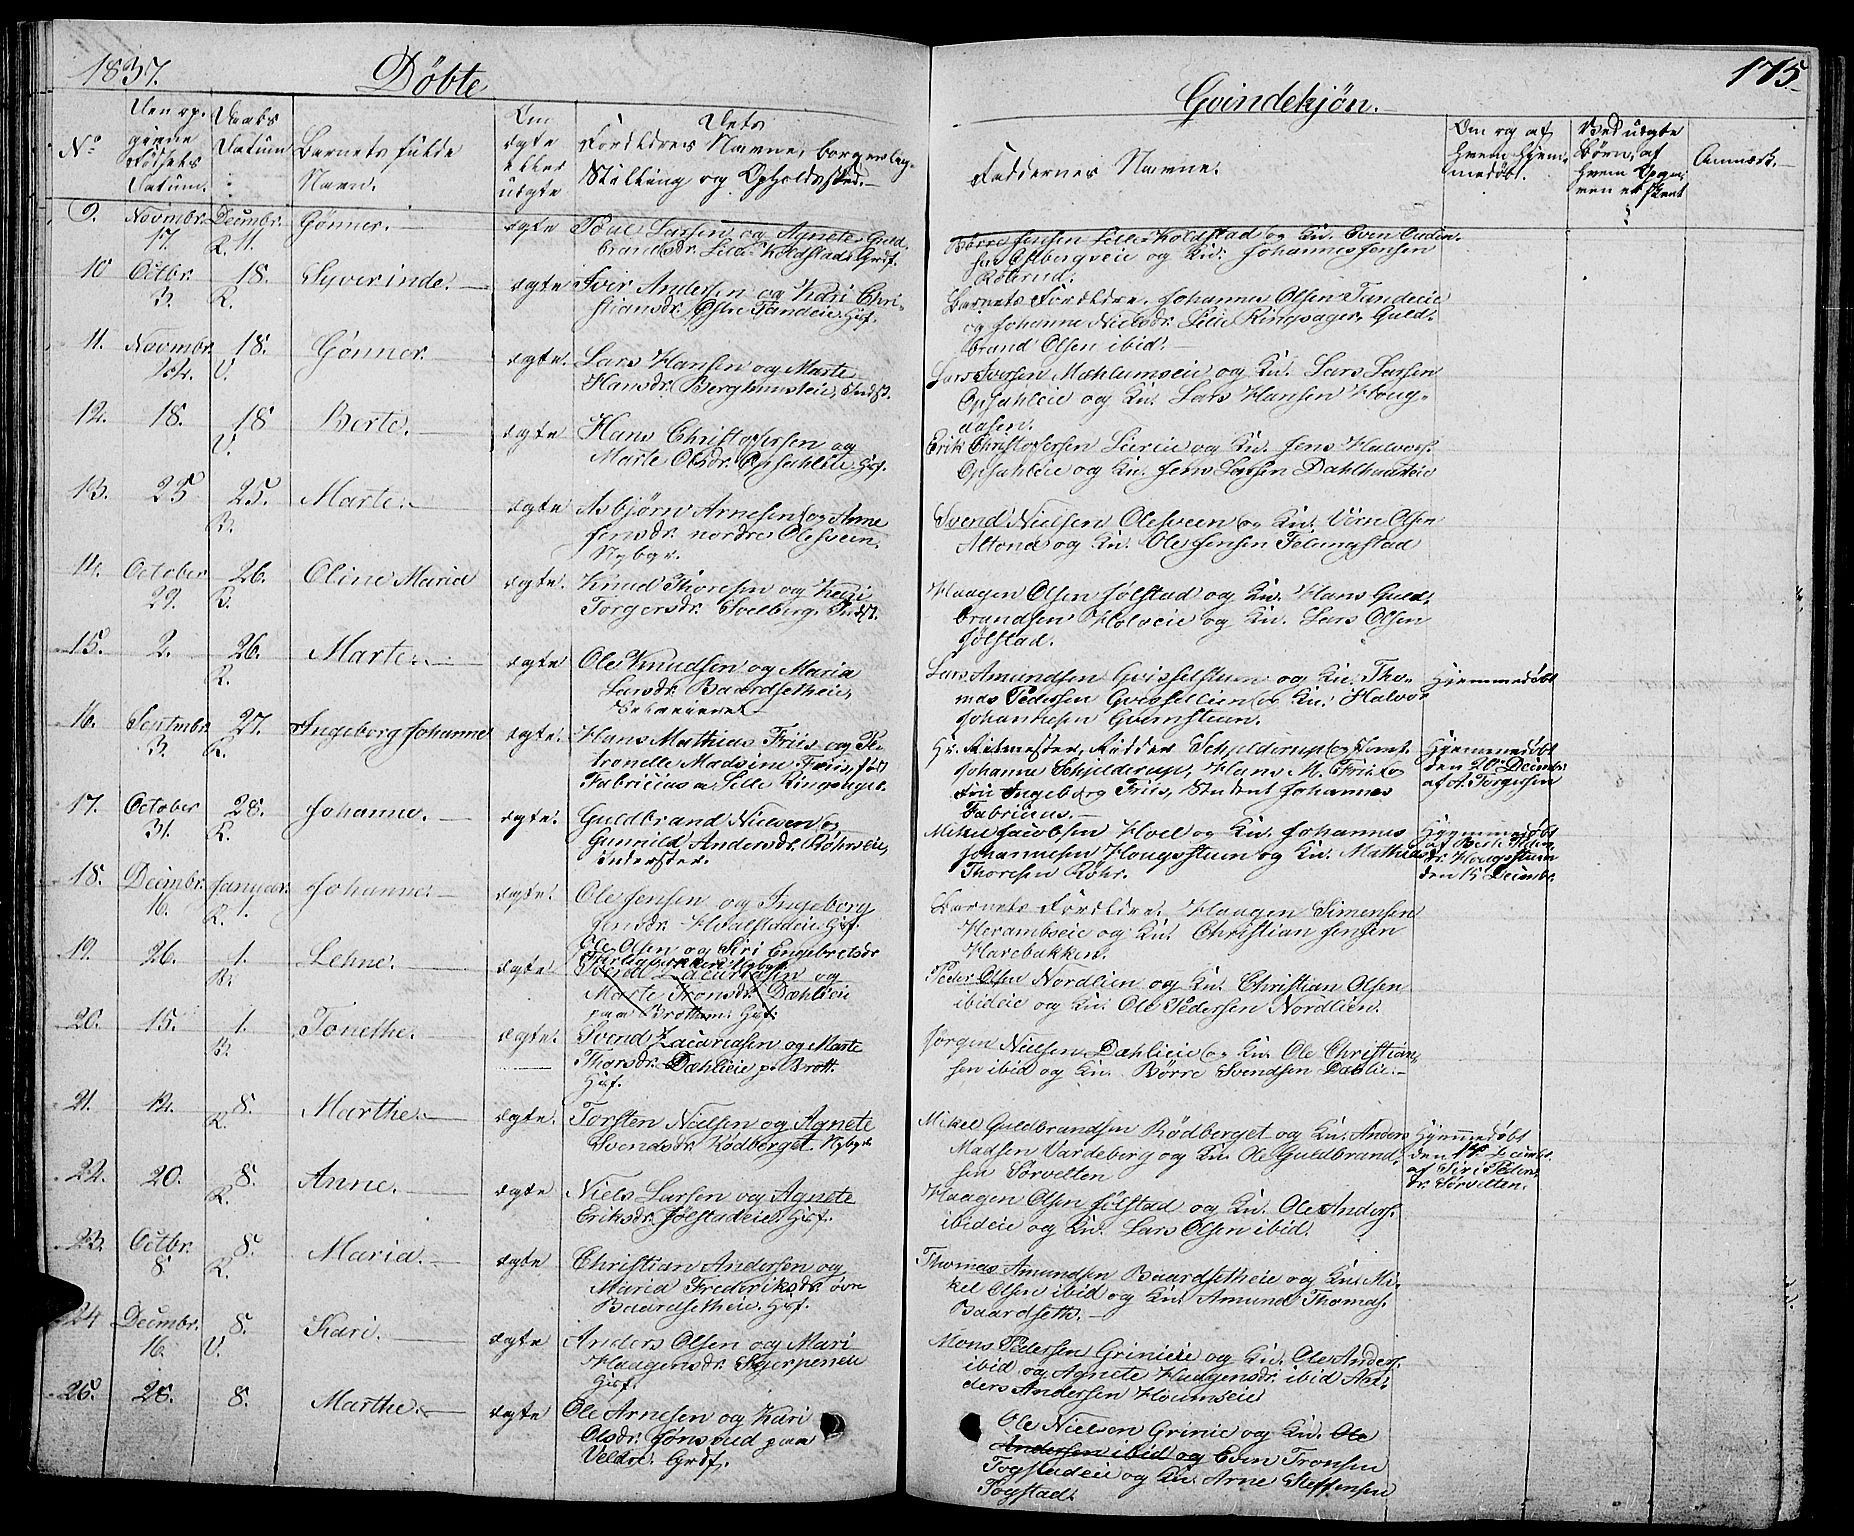 1837.
Döbte
Qvindekjön.
175.
No
Den op-
givne
Födsels
Datum.
Daabs
Datum
Barnets fulde
Navn.
Om
ægte
eller
uægte
Dets
Forældres Navne, borgerlige
Stilling og Opholdssted.
Faddernes Navne.
Om og af
hvem hjem-
medöbt.
Ved uægte
Börn, af
hvem Opgi-
ven er skeet
Anmærk.
9. Novmbr. Decmbr. Gönner. ægte
17. R. 11.
Poul Larsen og Agnete Guld-
brandsdr. Lille Koldstad Grdf.
Börre Jensen Lille Koldstad og Kv. Even
Östbergeie og Kv. Johannes Jensen
10 Octbr. 18. Syverinde. ægte
3. R.
Iver Andersen og Kari Chri-
stiansdr. Tandeeie Hsf.
Barnets Forældre. Johannes Olsen Tandeeie
og Johanne Nielsdr. Lille Ringsager. Guld-
brand Olsen ibid.
11. Novmbr. 18. Gönner. ægte.
14. V.
Lars Hansen og Marte
Hansdr. Indst.
Lars Iversen Mæhlumseie og Kv. Lars Larsen
Opsahleie og Kv. Lars Hansen Houg-
aasen.
12. 18. 18 Berte. ægte
V.
Hans Christofersen og
Marte Olsdr. Opsahleie Hsf.
Erik Christofersen og Kv. Jens Halvors.
Opsahleie og Kv. Jens Larsen
13. 25 25. Marte. ægte
B.
Asbjörn Arnesen og Anne
Jensdr. nordre Olesveen
Nybgr.
Svend Nielsen Olesveen og Kv. Olsen
Altona og Kv. Ole Jensen
14. October 26. Oline Maria ægte.
29. B.
Knud Thoresen og Kari
Torgersdr. Svelberg. Indst.
Haagen Olsen Jölstad og Kv. Hans Guld-
brandsen Holveie og Kv. Lars Olsen
Jölstad.
15. 2. 26. Marte. ægte
R.
Ole Knudsen og Maria
Larsdr. Baardsetheie,
Lars Amundsen og Kv. Tho-
mas Pedersen og Kv. Halvor
Johannesen
Hjemmedöbt
16. Septmbr. 27. Ingeborg Johanne ægte.
3. R.
Hans Mathias Friis og Pe-
tronelle Madsine Friis, föd
Fabricius a Lille Ringsager.
Hr. Ritmester, Ridder Schjelderup og Jomf.
Johanne Schjelderup, Hans M. Friis og
Fru Ingeborg Friis, Student Johannes
Fabricius.
Hjemmedöbt
den 20 Decmbr
af A. Torgersen
17. October 28. Johanne. ægte.
31. R.
Guldbrand Nielsen og
Gunnild Andersdr. Röhrseie,
Inderster.
Mikel Jacobsen Hoel og Kv. Johannes
Johannesen Hougsteen og Kv. Mathias
Thoresen Röhr.
Hjemmedöbt
af Berte
dr. Hougsteen
den 15 Decmbr.
18. Decmbr. Januar. Johanne. ægte.
16. R. 1.
Ole Jensen og Ingeborg
Jensdr. Hsf.
Barnets Forældre. Haagen Simensen
Herambseie og Kv. Christian Jensen
Harebakken.
19. 26. 1. Lehne. ægte
B.
Ole Olsen og Siri Engebretsdr
Svend Zacariasen og
Marte Tronsdr. Dæhlieie
paa Brottum. Hsf.
Peder Olsen Nordlien og Kv. Christian Olsen
ibideie og Kv. Ole Pedersen Nordlien.
20. 15. 1. Tonethe. ægte.
B.
Svend Zacariasen og Marte
Thorsdr. Dæhlieie p. Brott.
Hsf.
Jörgen Nielsen Dæhlieie og Kv. Ole Christian-
sen ibid og Kv. Börre Svendsen Dæhlie.
21. 12. 8. Marthe. ægte.
R.
Torsten Nielsen og Agnete
Svendsdr. Rödberget Nybgr.
Mikel Guldbrandsen Rödberget og Kv. Anders
Madsen Vardeberg og Kv. Ole Guldbrand-
sen Sörvelten
Hjemmedöbt
den 14 Decmbr.
af Siri Peders-
dr. Sörvelten.
22. 20. 8. Anne. ægte
R.
Niels Larsen og Agnete
Eriksdr. Jölstadeie. Hsf.
Haagen Olsen Jölstad og Kv. Ole Anders.
ibideie og Kv. Lars Olsen ibid.
23. Octbr. 8. Maria. ægte
8 R.
Christian Andersen og
Maria Frederiksdr. övre
Baardsetheie. Hsf.
Thomas Amundsen Baardsetheie og Kv. Mi-
kel Olsen ibid og Kv. Amund Thomas.
Baardseth.
24 Decmbr. 8. Kari. ægte
16. V.
Anders Olsen og Mari
Haagensdr. Skjerpeneie
Hsf.
Mons Pedersen Grinieie og Kv. Ole Anders.
ibid og Agnete Haagensdr. ibid An-
ders Andersen
25. 28. 8. Marthe. ægte
Ole Arnesen og Kari
Olsdr. Jönsrud paa
Veldre. Grdf.
Ole Nielsen Grinie og Kv. Ole
Andersen ibid og Even Tronsen
Togstadeie og Kv. Arne Steffensen
Togstad.